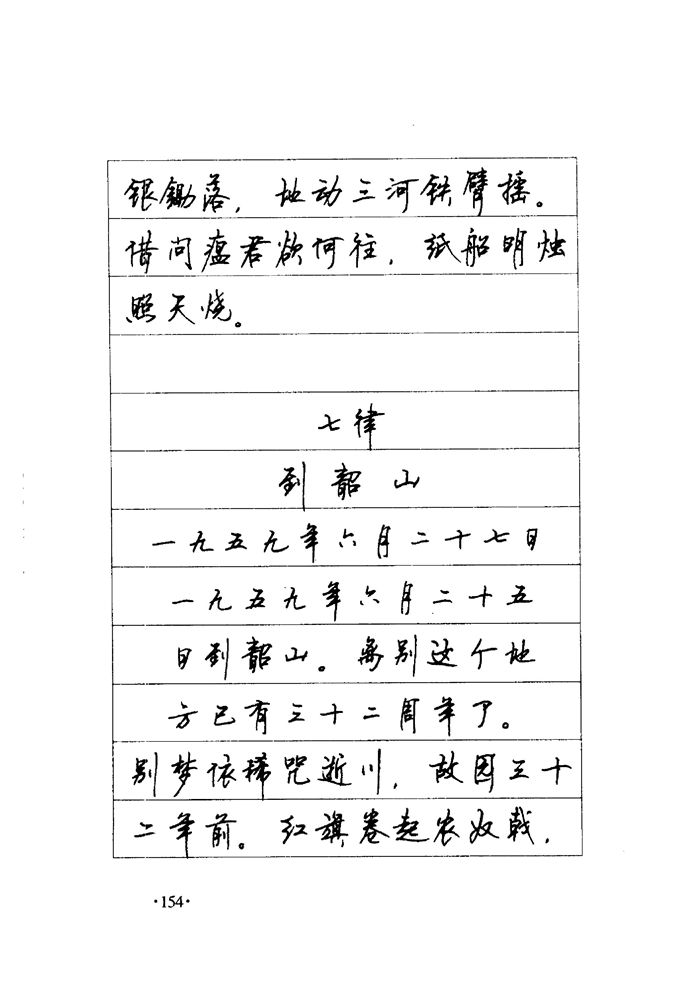 银锄落，地动三河铁臂摇。
借问瘟君欲何往，纸船明烛
照天烧。
七律
到韶山
一九五九年六月二十七日
一九五九年六月二十五
日到韶山。离别这个地
方已有三十二周年了。
别梦依稀咒逝川，故园三十
二年前。红旗卷起农奴戟，
·154·